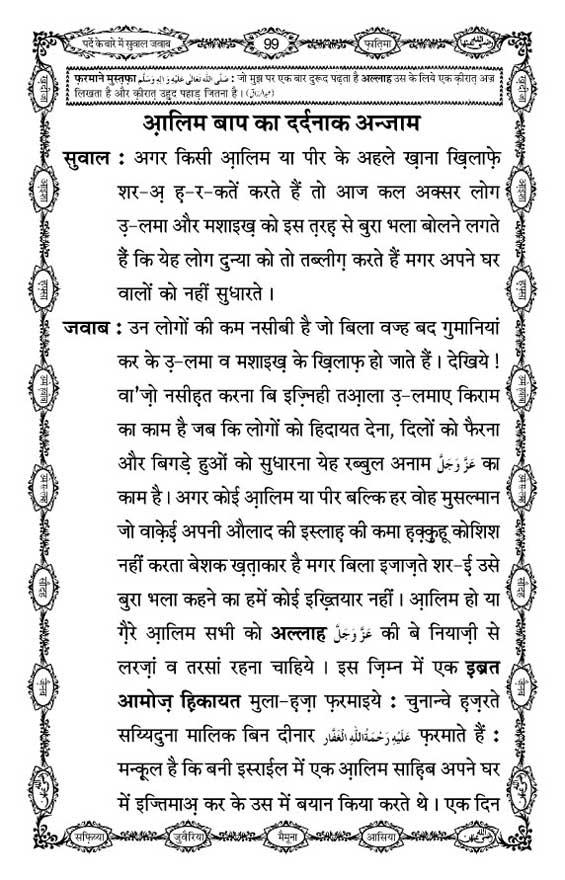 पर्दे के बारे में सुवाल जवाब
99
फ़ातिमा
फ़रमाने मुस्तफ़ा صَلَّى اللّٰهُ تَعَالٰى عَلَيْهِ وَاٰلِهٖ وَسَلَّم : जो मुझ पर एक बार दुरूद पढ़ता है अल्लाह उस के लिये एक क़ीरात अज्र
लिखता है और क़ीरात उहुद पहाड़ जितना है।
आ़लिम बाप का दर्दनाक अन्जाम
सुवाल : अगर किसी आ़लिम या पीर के अहले ख़ाना ख़िलाफ़े
शर-अ़ ह़-र-कतें करते हैं तो आज कल अक्सर लोग
उ़-लमा और मशाइख़ को इस त़रह़ से बुरा भला बोलने लगते
हैं कि येह लोग दुन्या को तो तब्लीग़ करते हैं मगर अपने घर
वालों को नहीं सुधारते ।
जवाब : उन लोगों की कम नसीबी है जो बिला वज्ह बद गुमानियां
कर के उ़-लमा व मशाइख़ के ख़िलाफ़ हो जाते हैं । देखिये !
वा'ज़ो नसीह़त करना बि इज़्निही तआ़ला उ़-लमाए किराम
का काम है जब कि लोगों को हिदायत देना, दिलों को फैरना
और बिगड़े हुओं को सुधारना येह रब्बुल अनाम عَزَّ وَجَلَّ का
काम है । अगर कोई आ़लिम या पीर बल्कि हर वोह मुसल्मान
जो वाक़ेई अपनी औलाद की इस्लाह की कमा ह़क़्क़ुहू कोशिश
नहीं करता बेशक ख़त़ाकार है मगर बिला इजाज़ते शर-ई़ उसे
बुरा भला कहने का हमें कोई इख़्तियार नहीं । आ़लिम हो या
ग़ैरे आ़लिम सभी को अल्लाह عَزَّ وَجَلَّ की बे नियाज़ी से
लरज़ां व तरसां रहना चाहिये । इस ज़िम्न में एक इब्रत
आमोज़ ह़िकायत मुला-हज़ा फ़रमाइये : चुनान्चे ह़ज़रते
सय्यिदुना मालिक बिन दीनार عَلَيْهِ رَحْمَةُ اللّٰهِ الْغَفَّار फ़रमाते हैं :
मन्क़ूल है कि बनी इस्राईल में एक आ़लिम साह़िब अपने घर
में इज्तिमाअ़ कर के उस में बयान किया करते थे । एक दिन
सफ़िय्या
जुवैरिया
मैमूना
आसिया